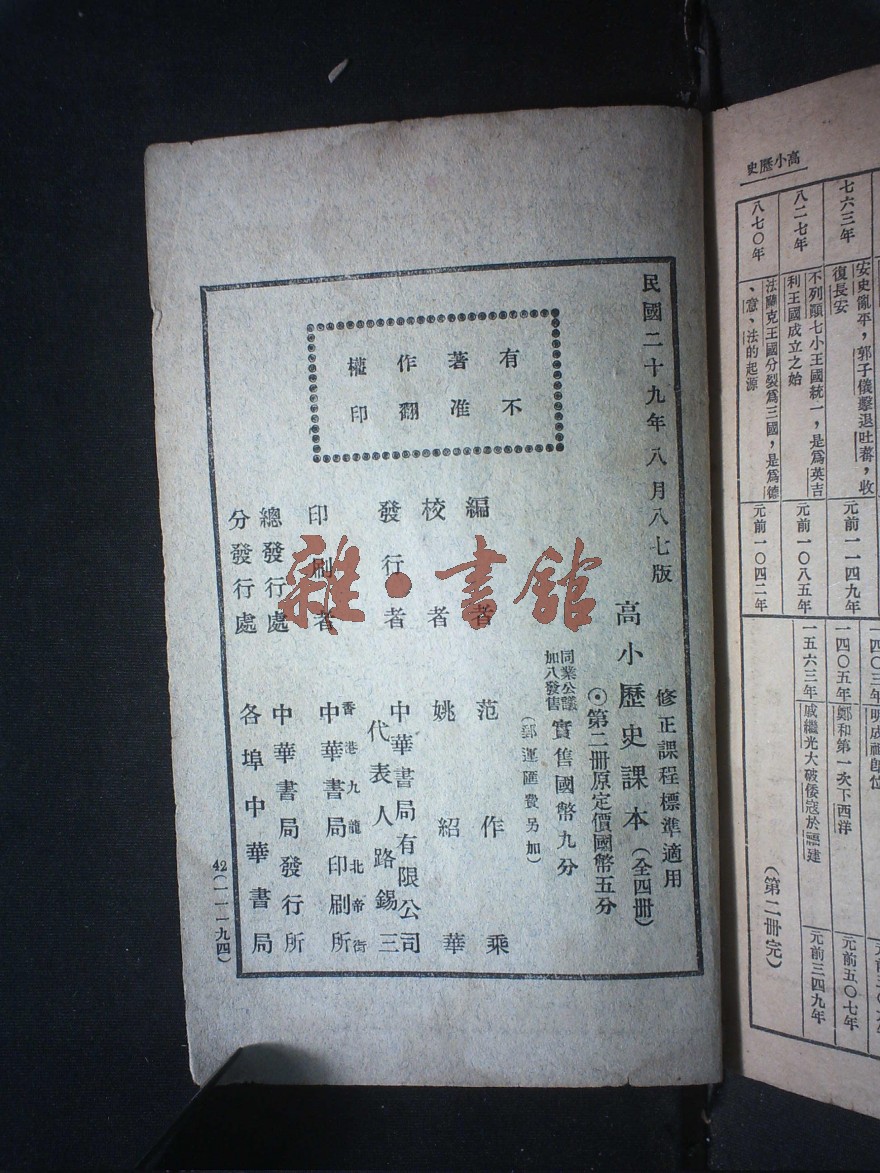 高小歷史
七六三年
安史亂平，郭子儀擊退吐蕃，收
復長安
元前一一四九年
八二七年
不列顛七小王國統一，是爲英吉
利王國成立之始
元前一〇八五年
八七〇年
法蘭克王國分裂爲三國，是爲德
、意、法的起源
元前一〇四二年
一四〇三年
明成祖卽位
一四〇五年
鄭和第一次下西洋
元前五〇七年
一五六三年
戚繼光大破倭寇於福建
元前三四九年
（第二冊完）
民國二十九年八月八七版
有不
著准
作翻
權印
修正課程標準適用
高小歷史課本（全四冊）
⊙第二冊原定價國幣五分
同業公議
加八發售
實售國幣九分
（郵運匯費另加）
編者 范作乘
校者 姚紹華
發行者 中華書局有限公司
代表人路錫三
印刷者 香港九龍北帝街
中華書局印刷所
總發行處 中華書局發行所
分發行處 各埠中華書局
42（一一一九四）
雜·書館